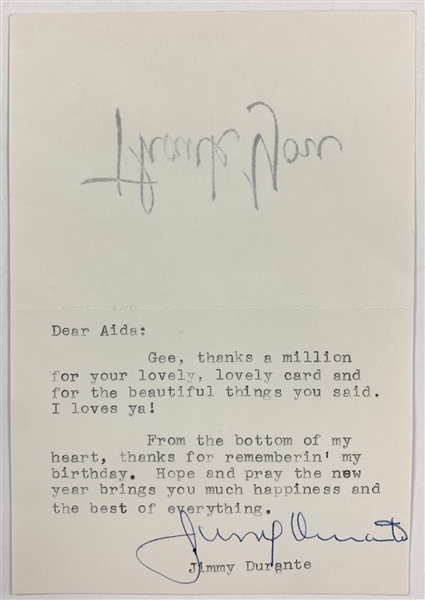 Thank You
Dear Aida:
Gee, thanks a million
for your lovely, lovely card and
for the beautiful things you said.
I loves ya!
From the bottom of my
heart, thanks for rememberin' my
birthday. Hope and pray the new
year brings you much happiness and
the best of everything.
Jimmy Durante
Jimmy Durante